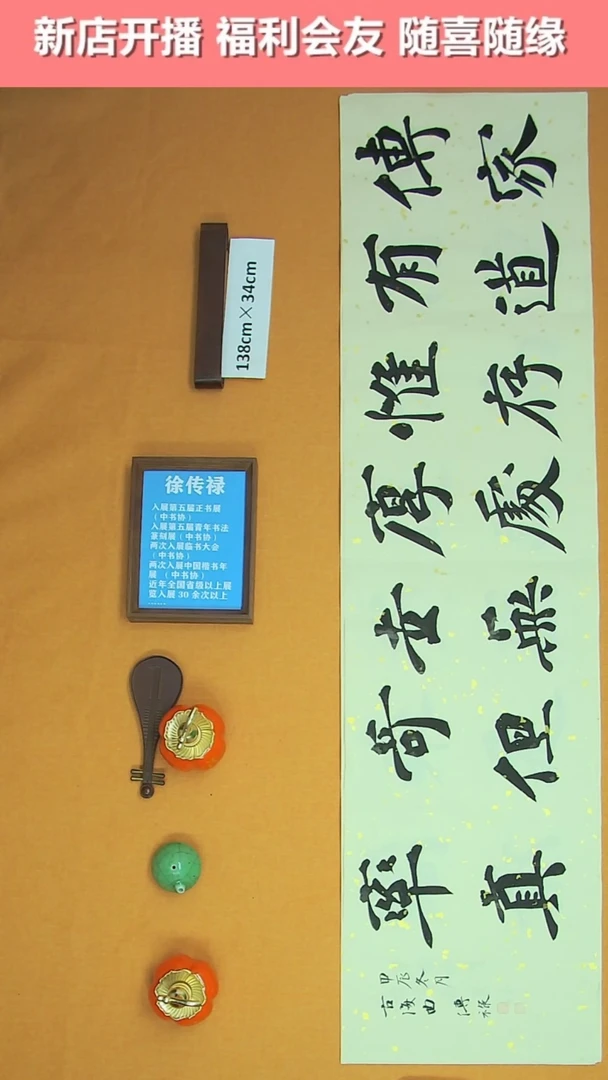 新店开播 福利会友 随喜随缘
138cm×34cm
徐传禄
入展第五届正书展
（中书协）
入展第五届青年书法
篆刻展（中书协）
两次入展临书大会
（中书协）
两次入展中国楷书年
展（中书协）
近年全国省级以上展
览入展 30 余次以上
......
傳家
有道
惟存
厚處
世無
奇但
率真
甲辰冬月
古海曲 傳祿